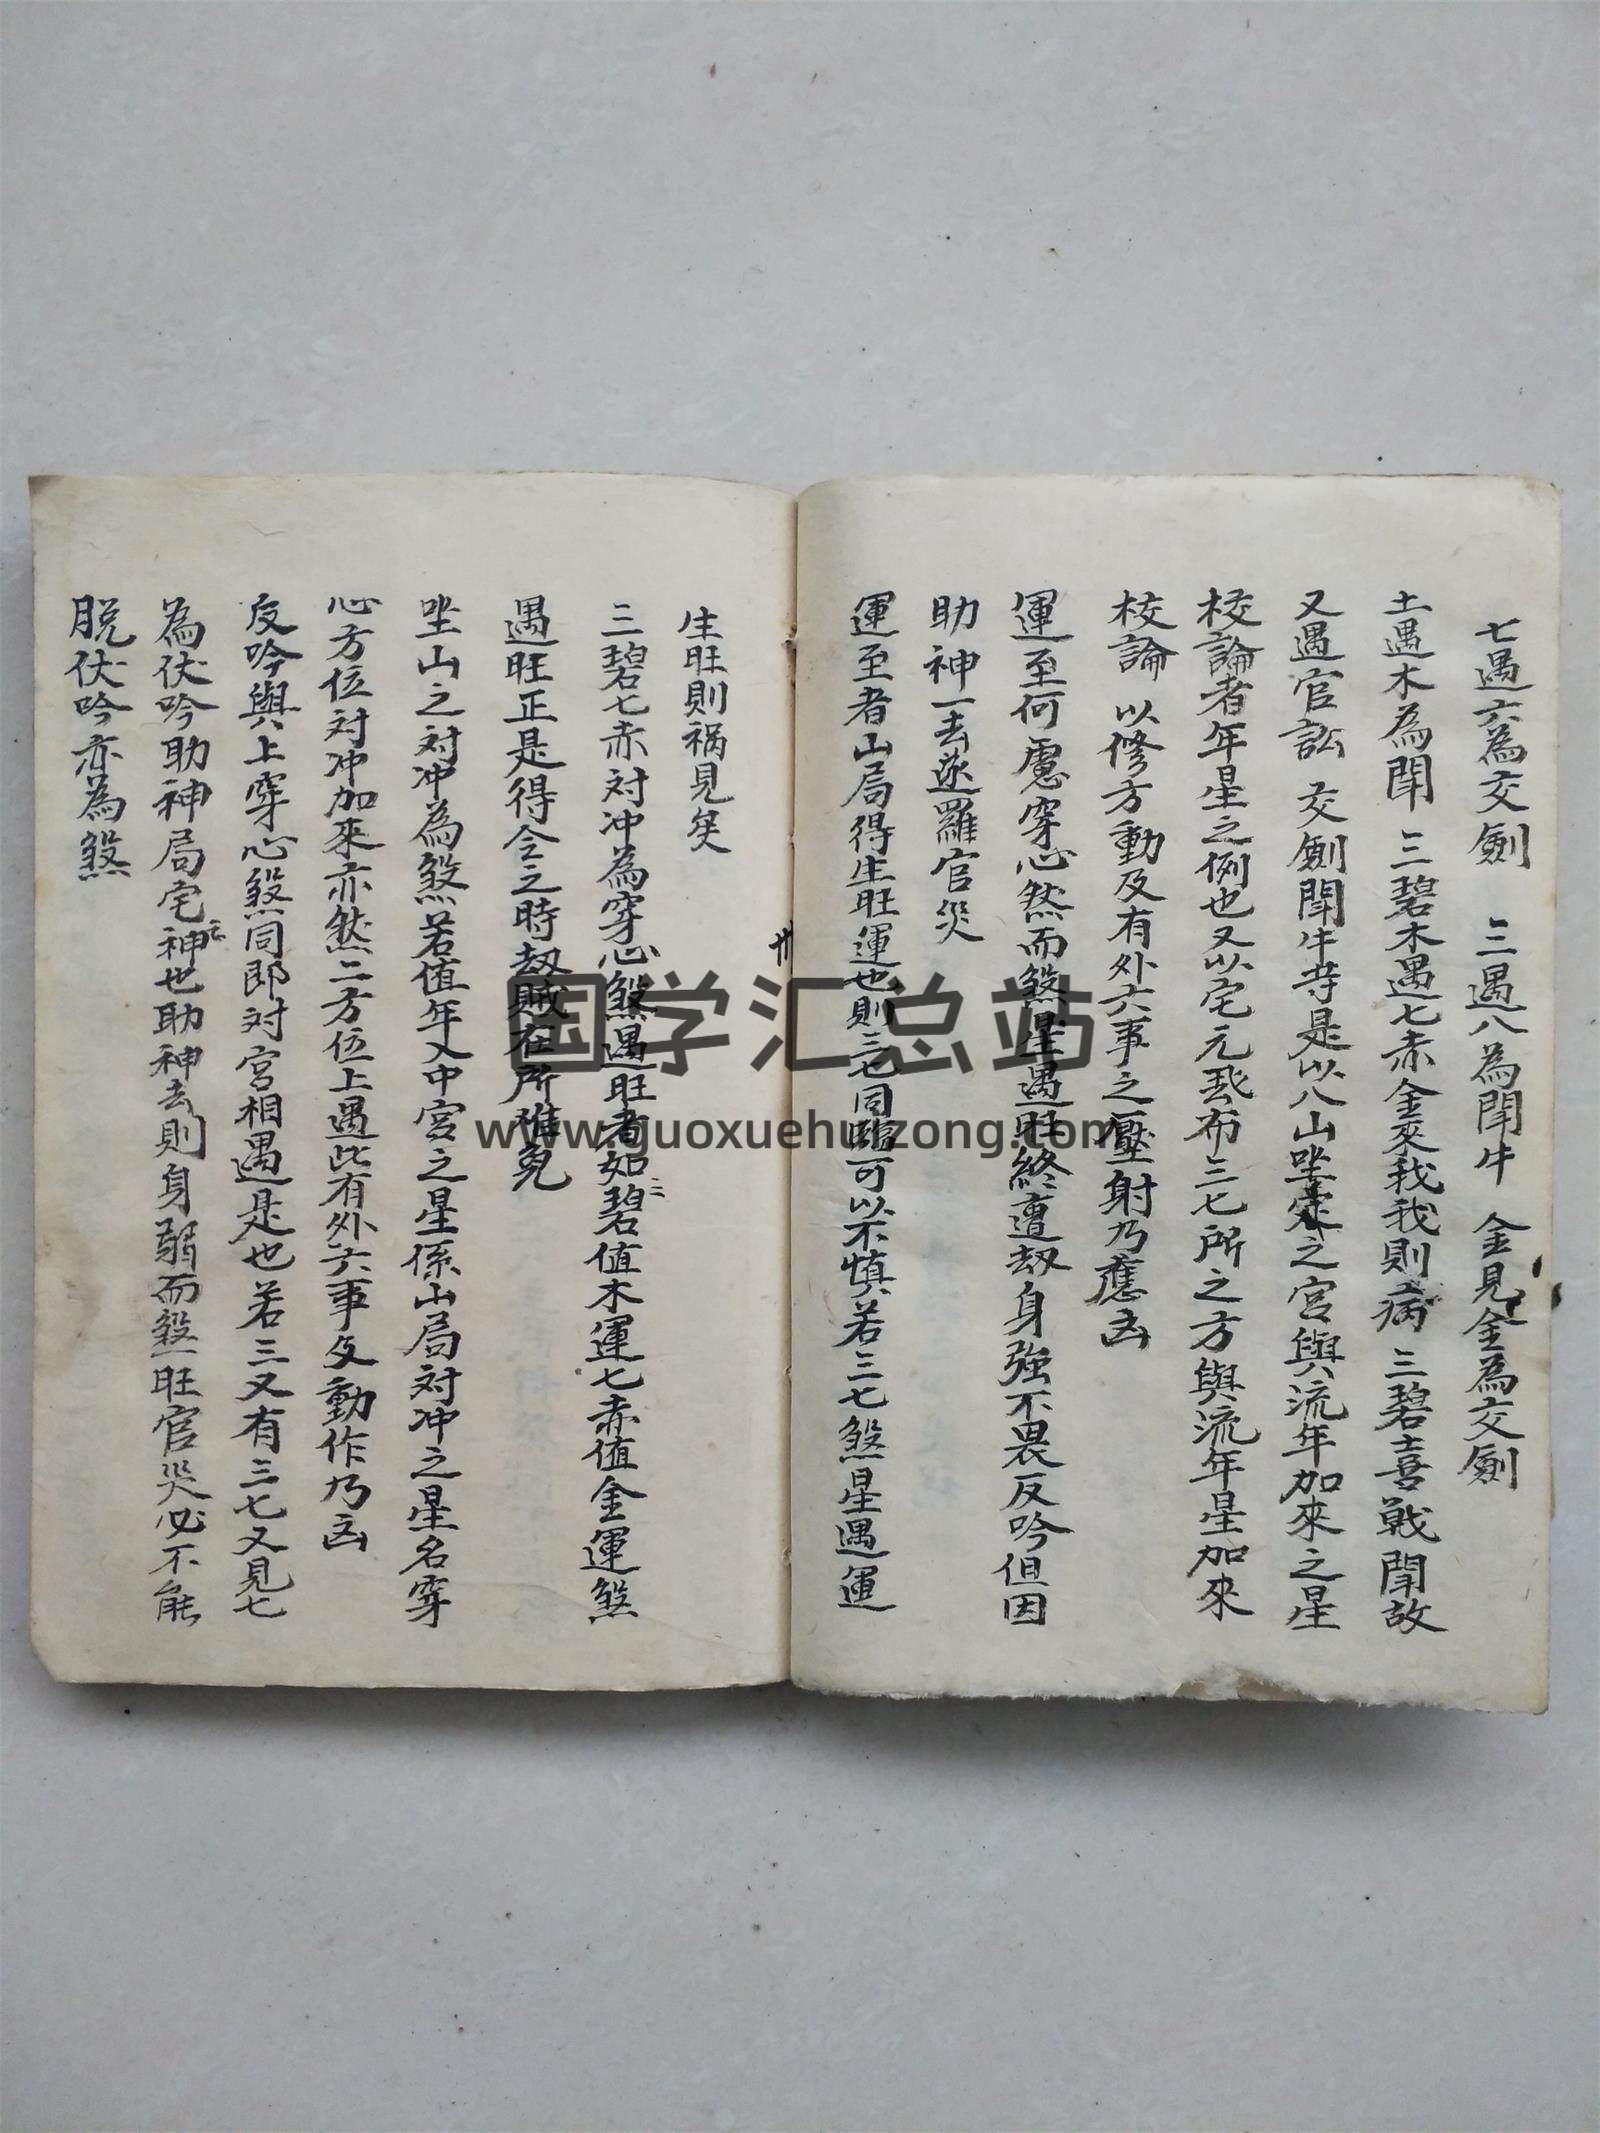 七遇六為交劍 三遇八為鬪牛 金見金為交劍
土遇木為鬪 三碧木遇七赤金來我我則病 三碧喜戰鬪故
又遇官訟 交劍鬪牛寺是以八山坐宮之宮與流年加來之星
校論者年星之例也又以宅元飛布三七所之方與流年星加來
校論 以修方動及有外六事之壓射乃應凶
運至何慮穿心然而煞星遇旺終遭刼身強不畏反吟但因
助神一去遂羅官災
運至者山局得生旺運也則三七同臨可以不慎若三七煞星遇運
生旺則禍見矣
三碧七赤対冲為穿心煞遇旺者如三碧值木運七赤值金運煞
遇旺正是得令之時刼賊在所惟免
坐山之対冲為煞若值年入中宮之星係山局対冲之星名穿
心方位対冲加來亦然二方位上遇此有外六事及動作乃凶
反吟與上穿心煞同即対宮相遇是也若三又有三七又見七
為伏吟助神局宅之神也助神去則身弱而煞旺官災必不能
脫伏吟亦為煞
廿
国学汇总站
www.guoxuehuizong.com